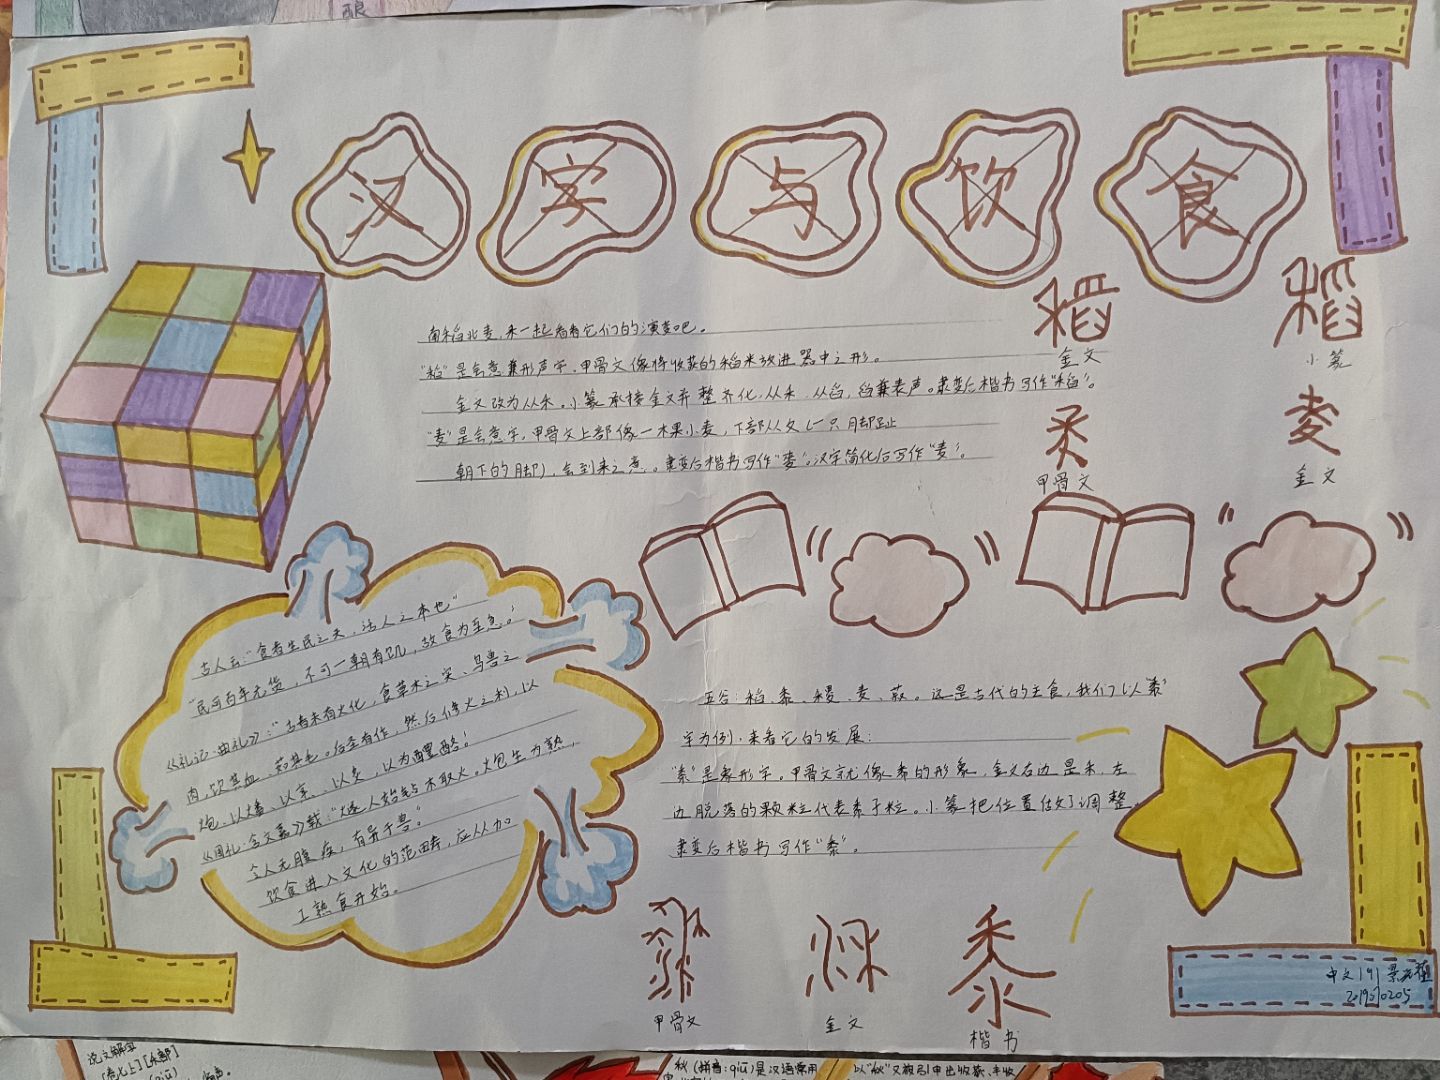 汉字与饮食
南稻北麦,来一起看看它们的演变吧。
"稻"是会意兼形声字,甲骨文像将收获的稻米放进器中之形。
金文改为从禾。小篆承接金文并整齐化,从禾,从舀,舀兼表声。隶变后楷书写作"稻"。
"麦"是会意字,甲骨文上部像一木果小麦,下部从夂(一只脚趾
朝下的脚),会到来之意。隶变后楷书写作"麥"。汉字简化后写作"麦"。
稻
金文
稻
小篆
甲骨文
麦
金文
古人云:"食者生民之天,活人之本也"
"民可百年无货,不可一朝有饥,故食为至急。"
《礼记·曲礼》:"古者未有火化,食草木之实、鸟兽之
肉,饮其血,茹其毛。后圣有作,然后修火之利,以
炮、以燔、以烹、以炙,以为醴酪!
《周礼·含文嘉》载:"燧人始钻木取火。炮生为熟,
令人无腹疾,有异于兽。"
饮食进入文化的范畴,应从加
工熟食开始。
五谷:稻、黍、稷、麦、菽。这是古代的主食,我们以"黍"
字为例,来看它的发展:
"黍"是象形字。甲骨文就像黍的形象,金文右边是禾,左
边脱落的颗粒代表黍子粒。小篆把位置做了调整。
隶变后楷书写作"黍"。
甲骨文
金文
黍
楷书
中文191
说文解字
【卷七上】【禾部】
秋(拼音:qiū)是汉语常用
以"秋"又被引申出收获、丰收